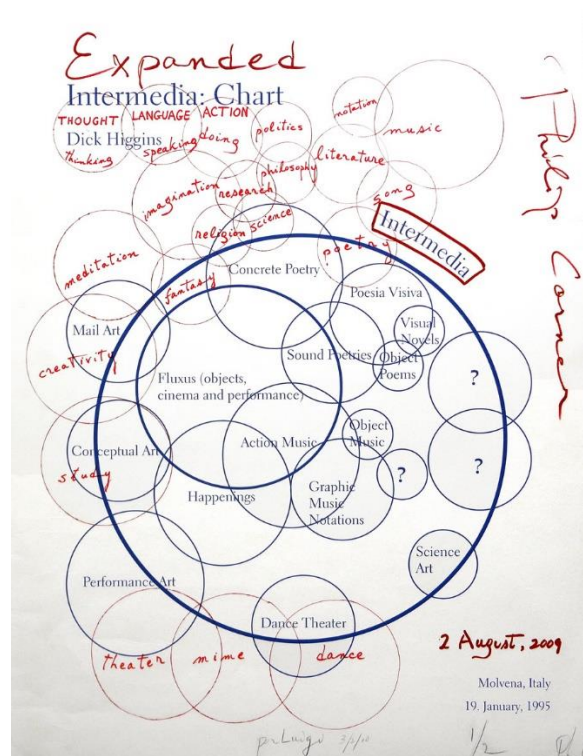 Expanded
Intermedia: Chart
THOUGHT LANGUAGE ACTION
Dick Higgins
thinking
speaking
doing
politics
notation
music
philosophy
literature
imagination
research
song
religion
science
poetry
Intermedia
Philip Corner
meditation
fantasy
Concrete Poetry
Poesia Visiva
Mail Art
Visual
Novels
creativity
Sound Poetries
Object
Poems
Fluxus (objects,
cinema and performance)
?
Object
Music
Action Music
Conceptual Art
study
?
?
Happenings
Graphic
Music
Notations
Science
Art
Performance Art
Dance Theater
theater
mime
dance
2 August, 2009
Molvena, Italy
19. January, 1995
1/2